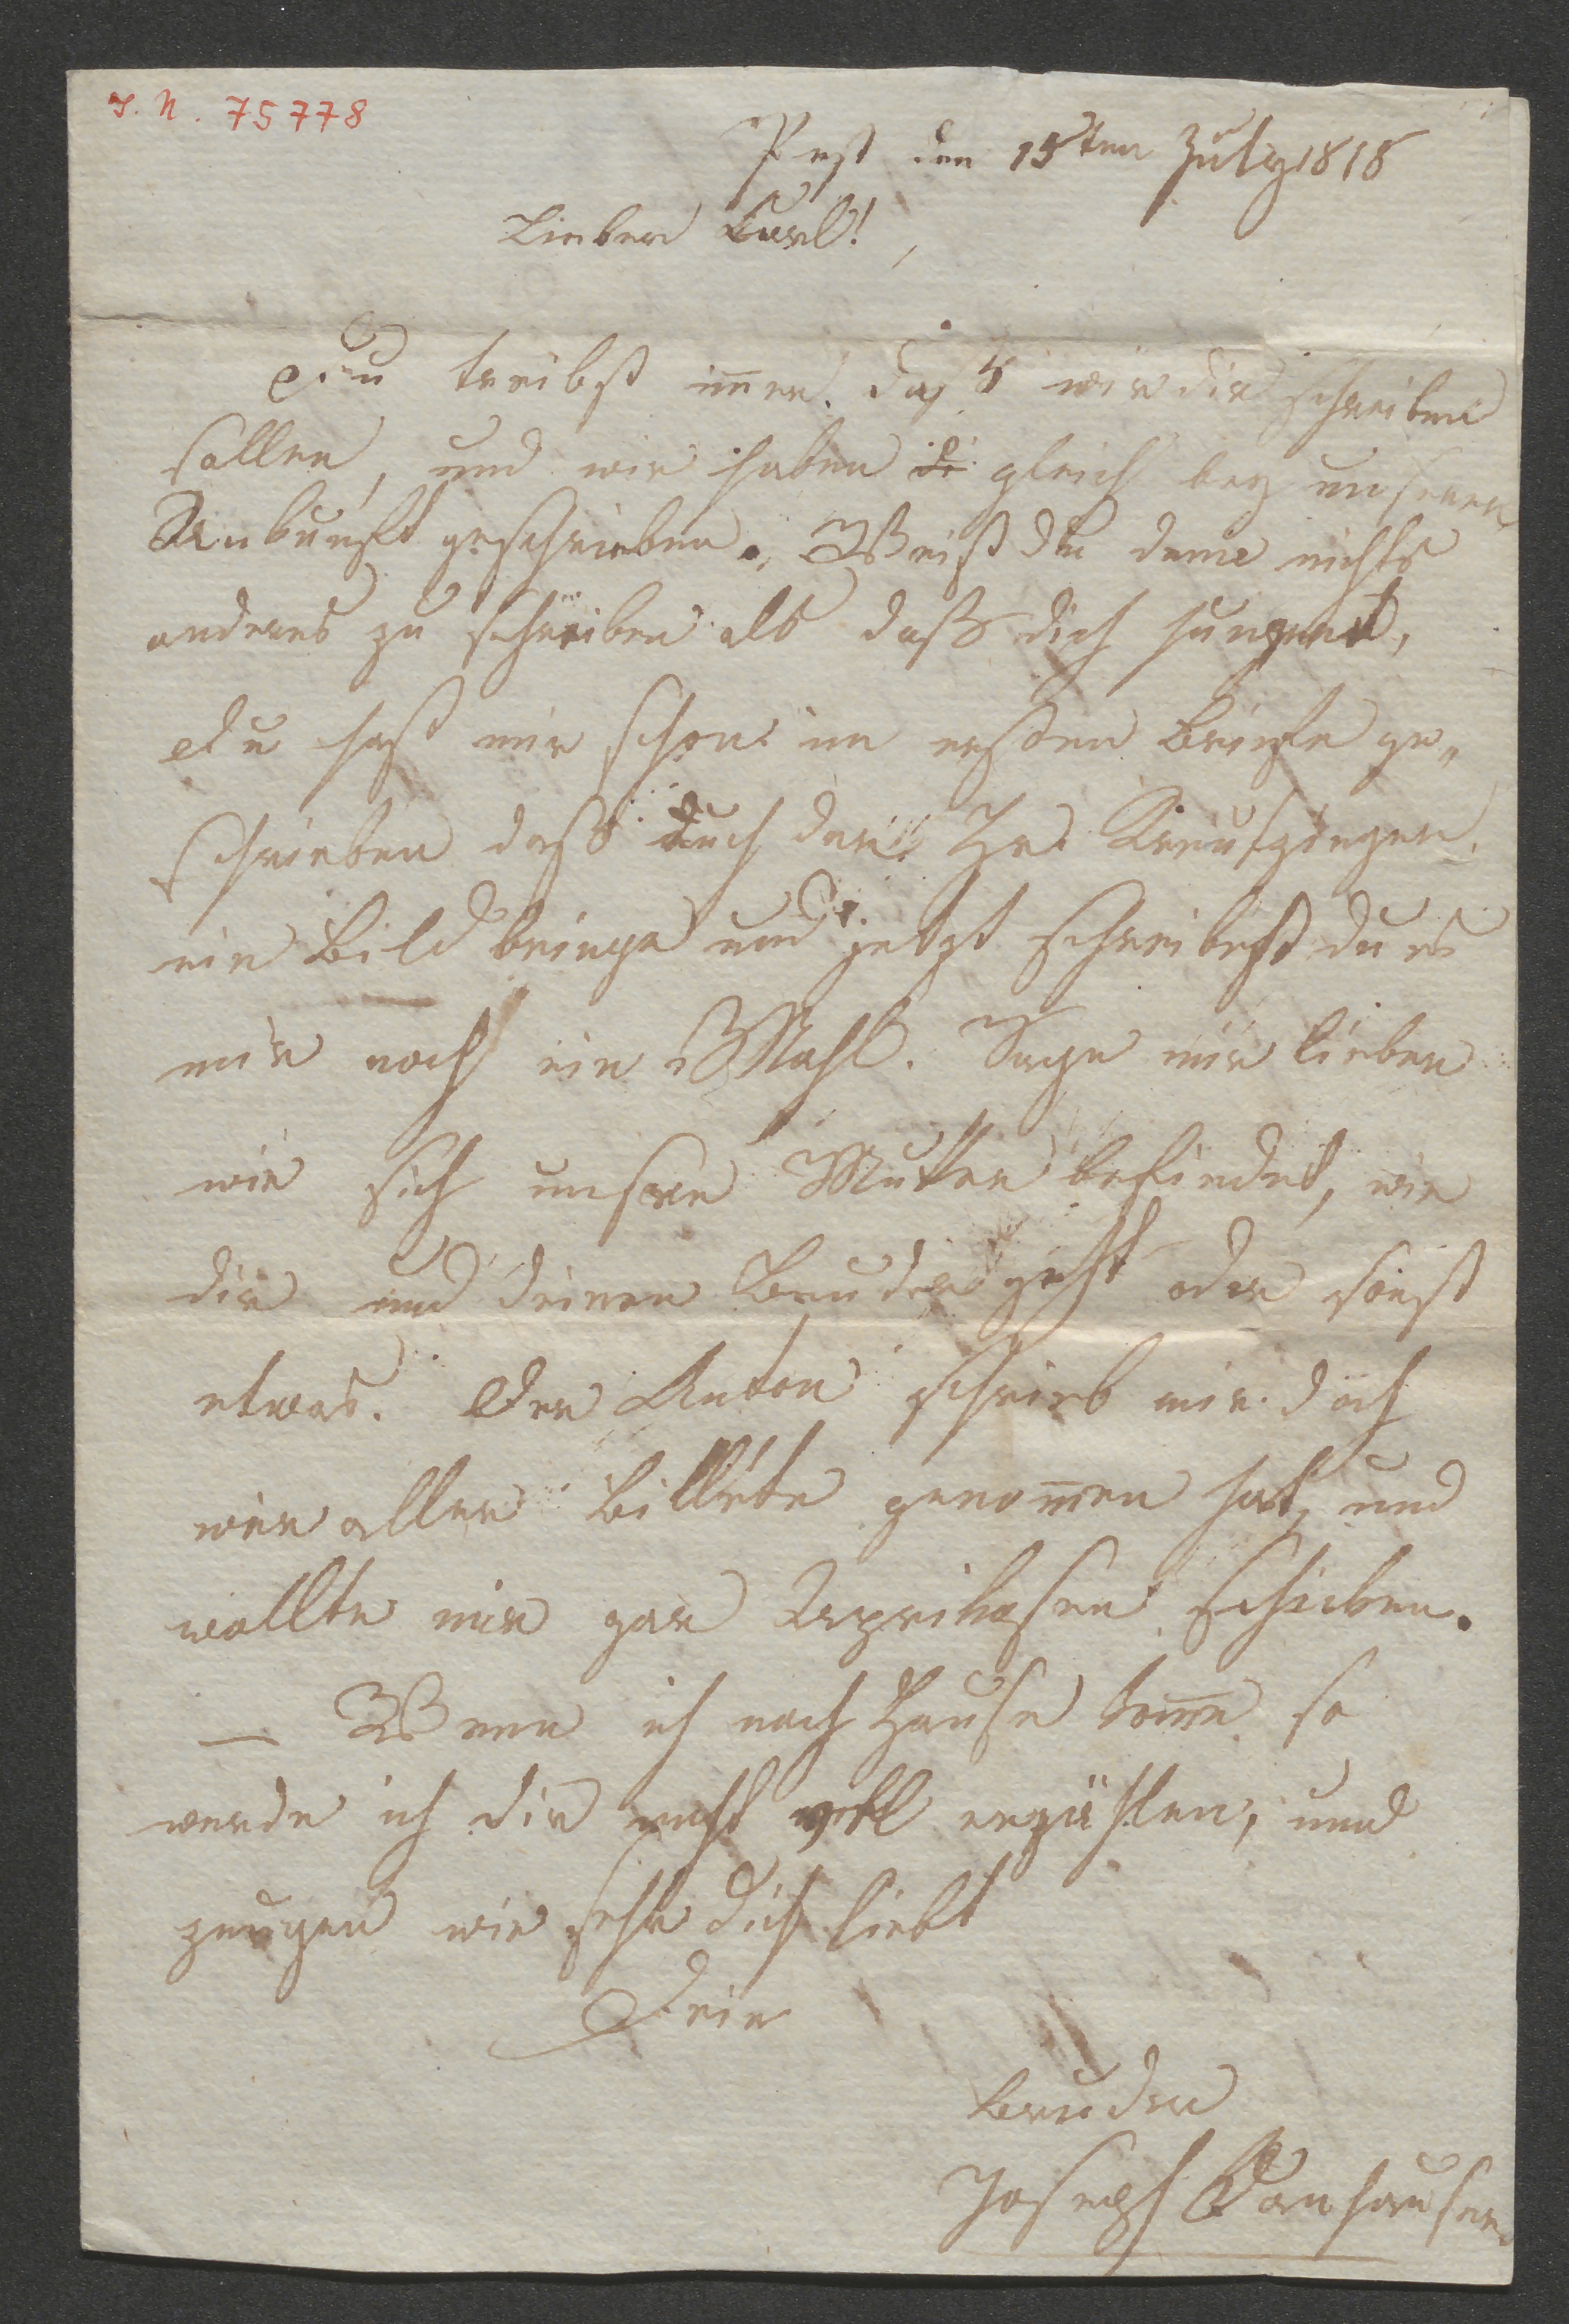 I. N. 75778
Pest den 15ten July 1818
Lieber Carl!
Du treibst im̅er daß wir dir schreiben
sollen, und wir haben di gleich bey unserer
Ankunft geschrieben. Weist du denn nichts
anderes zu schreiben als daß dich hungert,
du hast mir schon im ersten Briefe ge„
schrieben daß auch der Hr. Kreutzinger
ein Bild bringe und jetzt schreibest du es
mir noch ein Mahl. Sage mir lieber
wie sich unsere Mutter befindet, wie
dir und deinen Bruder geht oder sonst
etwas. Der Anton schrieb mir doch
wer aller Billete genom̅en hat, und
wollte mir gar Aprikosen schicken.
— Wenn ich nach Hause kom̅e so
werde ich dir recht viel erzählen, und
zeugen wie sehr dich liebt
Dein
Bruder
Joseph Danhauser